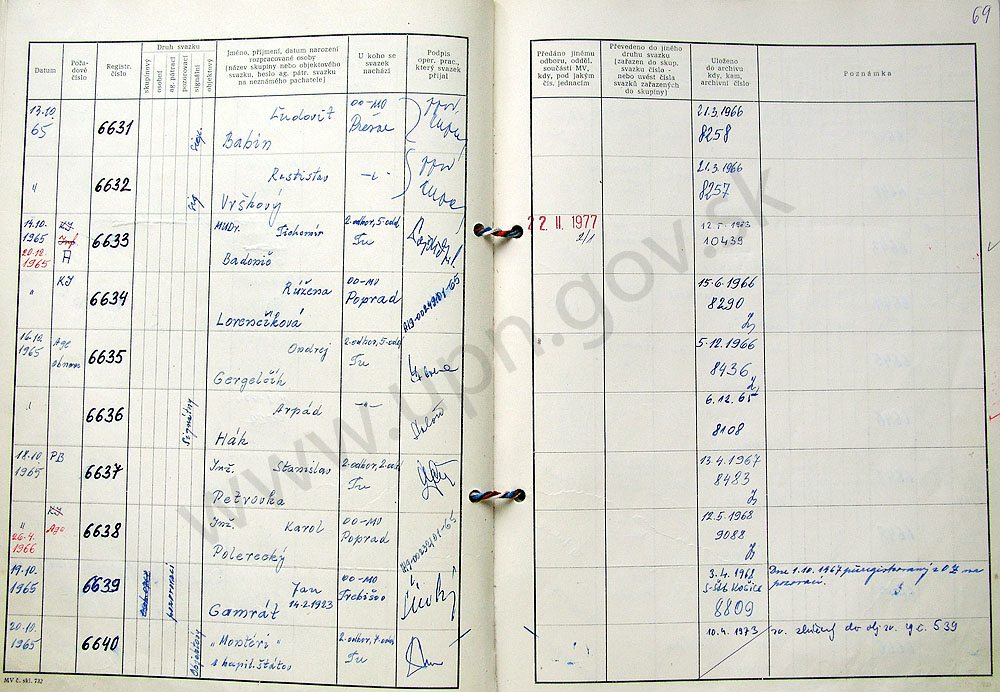 69
Datum
Pořa-
dové
číslo
Registr.
číslo
Druh svazku
skupinový
osobní
ag. pátrací
pozorovací
signální
objektový
Jméno, příjmení, datum narození
rozpracované osoby
(název skupiny nebo objektového
svazku, heslo ag. pátr. svazku
na neznámého pachatele)
U koho se
svazek
nachází
Podpis
oper. prac.,
který svazek
přijal
Předáno jinému
odboru, odděl.
součásti MV,
kdy, pod jakým
čís. jednacím
Převedeno do jiného
druhu svazku
(zařazen do skup.
svazku číslo -
nebo uvést čísla
svazků zařazených
do skupiny)
Uloženo
do archivu
kdy, kam,
archivní číslo
Poznámka
13.10.
65
6631
Ľudovít
Babin
OO-MO
21.3.1966
8258
"
6632
Rastislav
Vrškový
21.3.1966
8257
14.10.
1965
20.12.
1965
KJ
A
6633
MUDr.
Tichomír
Badonič
2.odbor, 5.odd.
Tu
22. II. 1977
2/1
10439
"
KJ
6634
Růžena
Lorenčíková
OO-MO
Poprad
A19-00249/01-65
15.6.1966
8290
16.10.
1965
Age
obnova
6635
Ondrej
Gergelčík
2.odbor, 5.odd.
Tu
5.12.1966
8436
6636
Signálny
Arpád
Hák
-"-
6.12.65
8108
18.10
1965
PB
6637
Inž. Stanislav
Petrovka
2.odbor, 2.odd.
Tu
13.4.1967
8483
"
26.4.
1966
KJ
Age
6638
Inž. Karol
Polerecký
OO-MO
Poprad
A19-00232/01-65
12.5.1968
9088
19.10.
1965
6639
pozorovací
Jan
14.2.1923
Gamrát
OO-MO
Trebišov
3.4.1968
S-ŠtB Košice
8809
Dne 1.10.1967 přeregistrovaný z OZ na
pozorací.
20.10.
1965
6640
Objektový
"Monteri"
s kapil. štátov
2.odbor, 4.odd.
Tu
10.4.1973
sv. zlúčený do obj. sv. reg. č. 539
MV č. skl. 732
www.upn.gov.sk